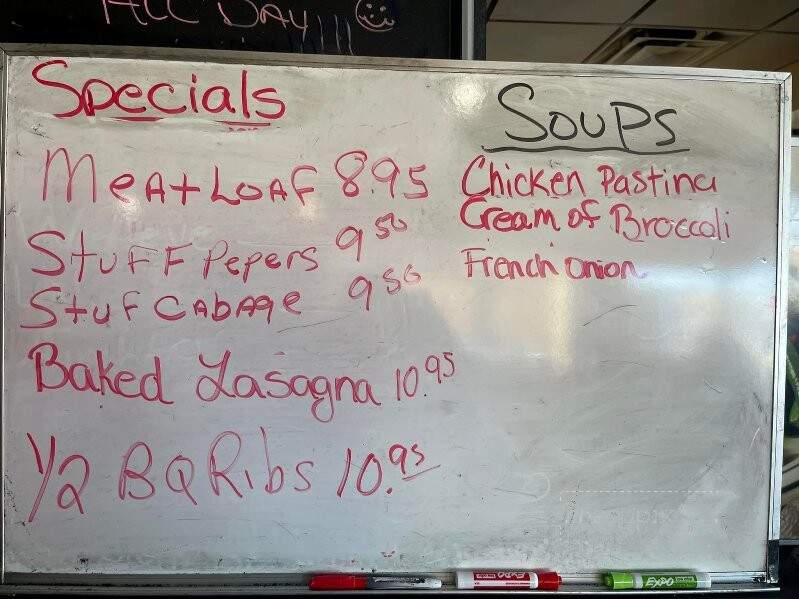 ALL DAY
Specials
MEAtLOAF 8.95
StuFF Pepers 9 50
Stuf CABAge 9 50
Baked Lasagna 10.95
1/2 BQ Ribs 10.95
Soups
Chicken Pastina
Cream of Broccoli
French onion
EXPO
EXPO